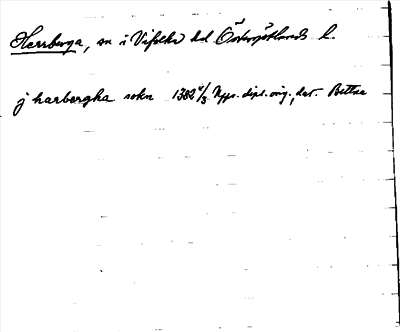 Herrberga, sn i Vifolka hd Östergötlands l.
j harbergha sokn 1382 4/3 Nyp. dipl. orig., dat.